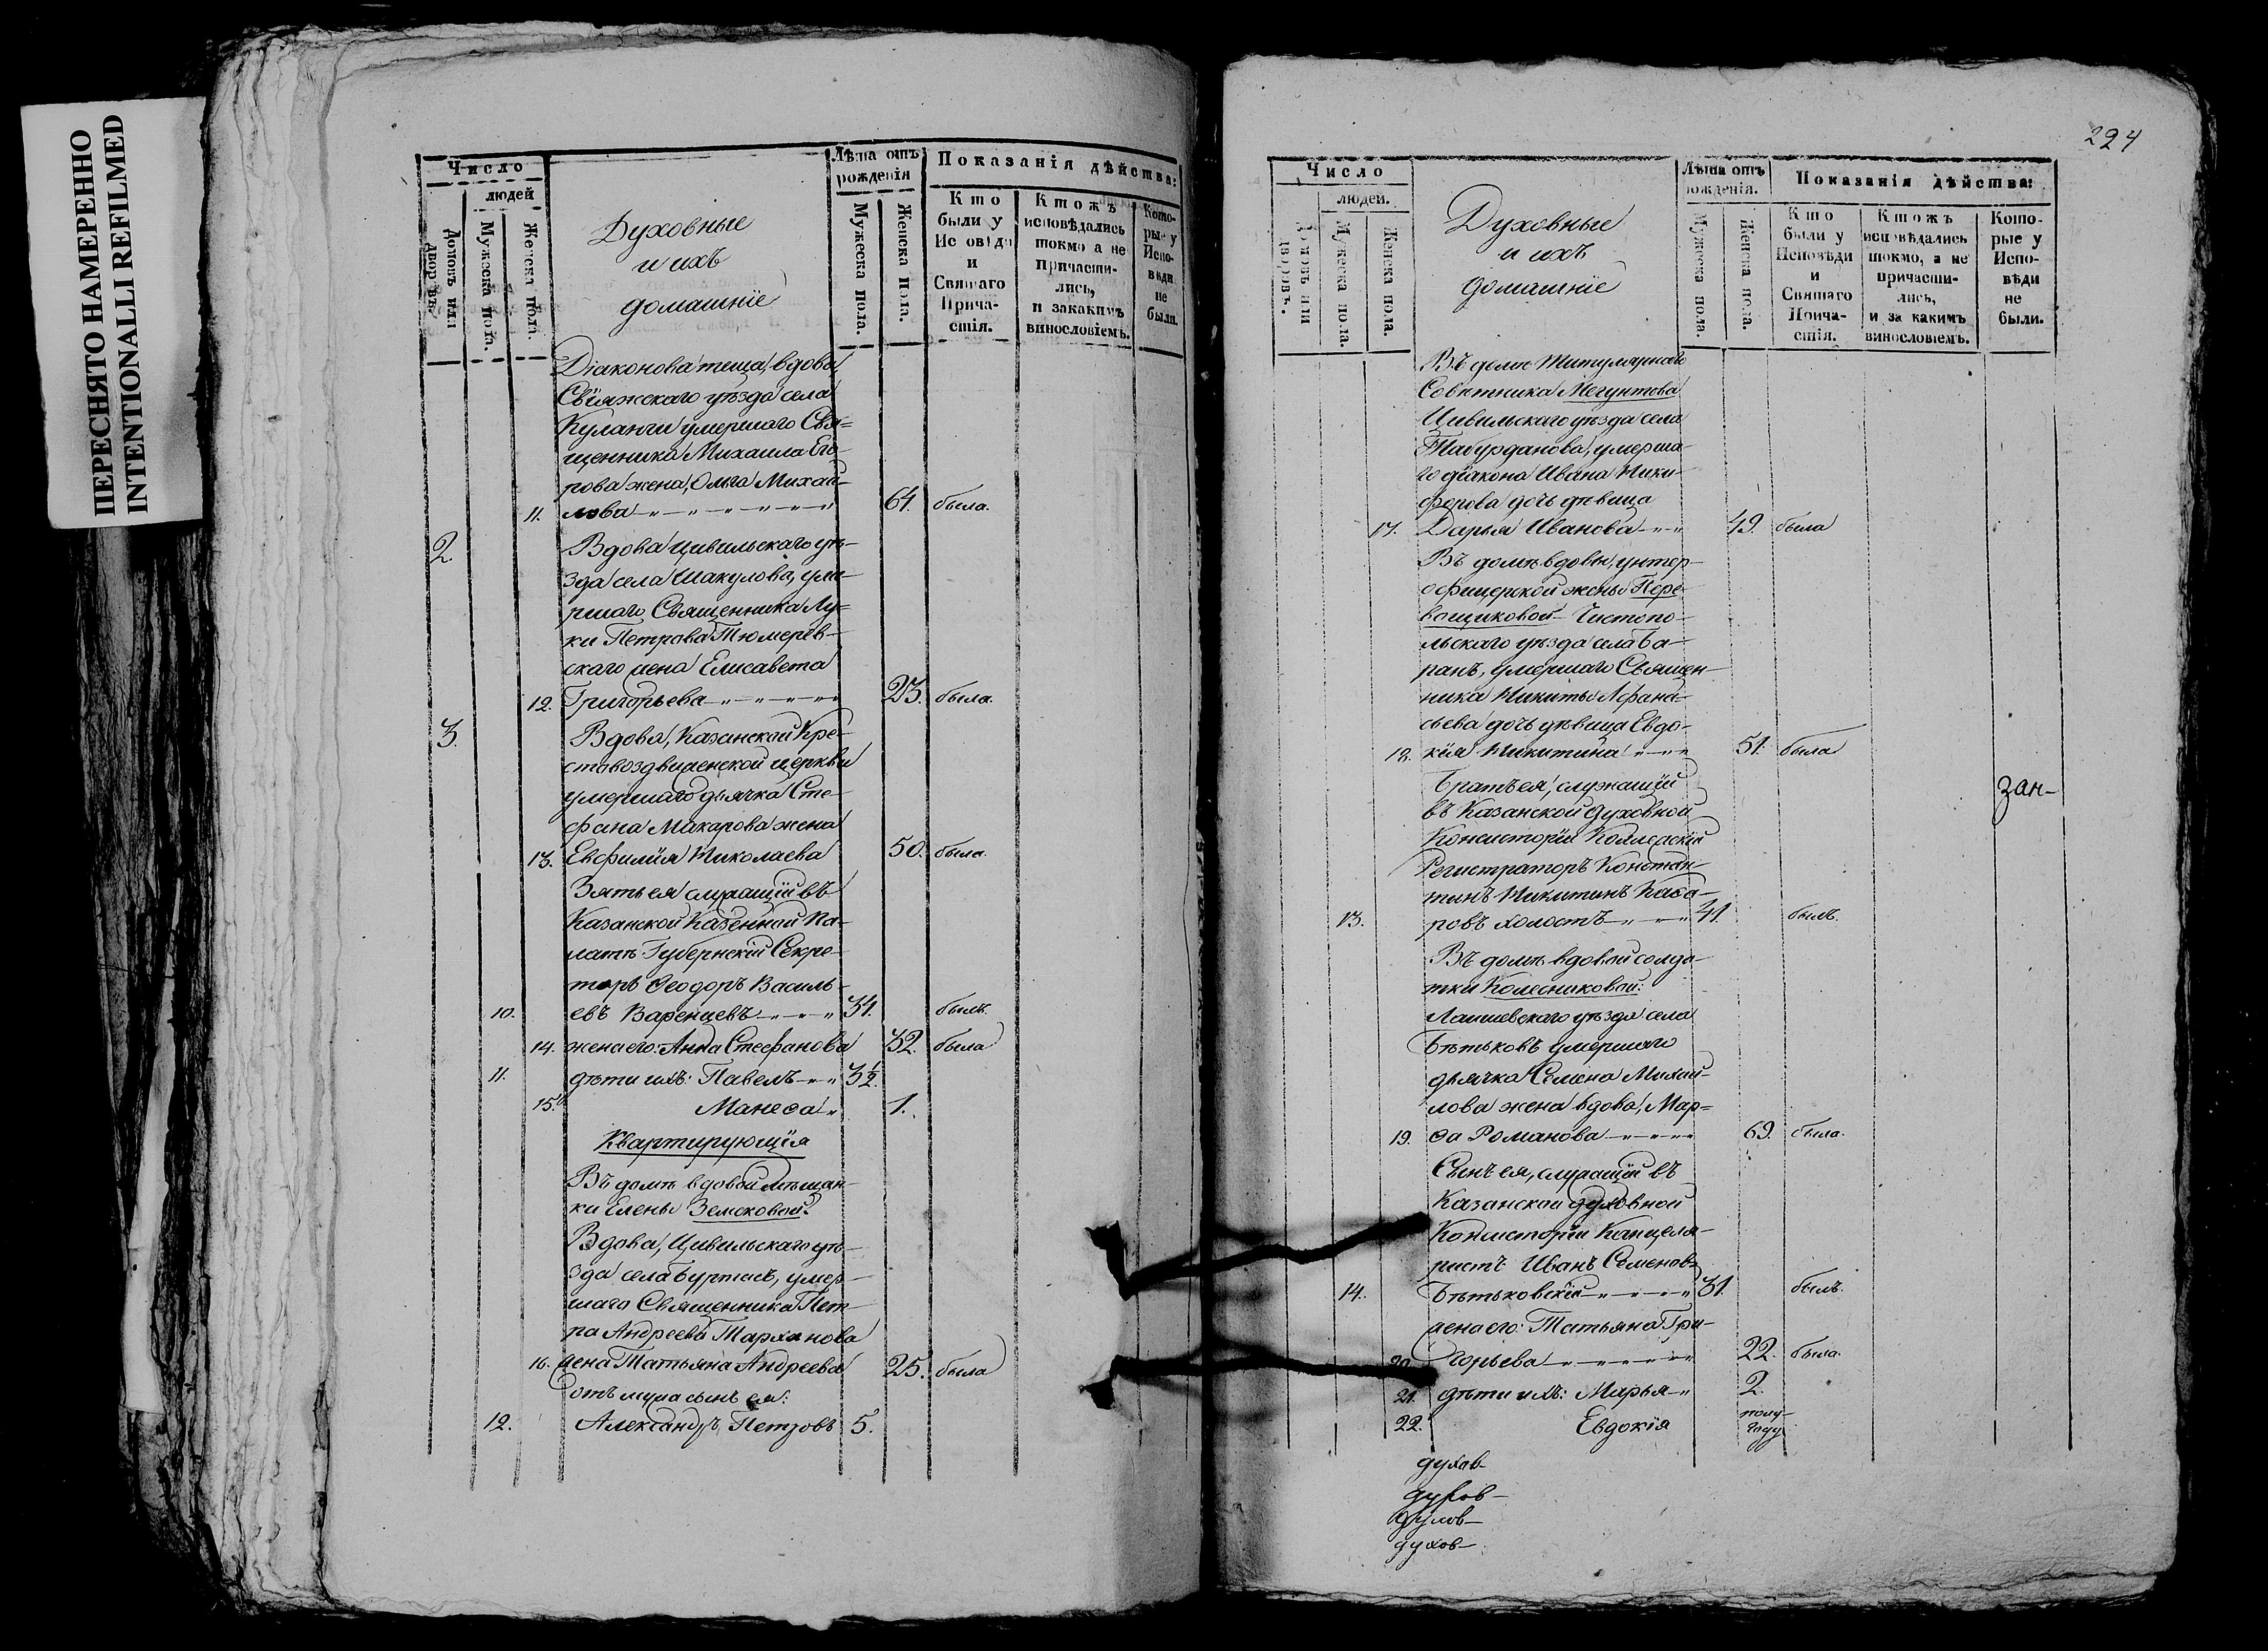 ПЕРЕСНЯТО НАМЕРЕННО
INTENTIONALLI REFILMED
Число
людей
Домовъ или дворовъ
Мужеска пола.
Женска пола.
Духовные
и ихъ
домашніе
Лѣта отъ
рожденія
Мужеска пола.
Женска пола.
Показанія дѣйства:
Кто
были у
Исповѣди
и
Святаго
Прича-
стія.
Ктожъ
исповѣдались
токмо а не
причасти-
лись,
и закакимъ
винословіемъ.
Кото-
рые у
Испо-
вѣди
не
были.
Діаконова теща, вдова
Свіяжскаго уѣзда села
Куланги умершаго Свя=
щенника Михаила Его-
рова жена, Ольга Михай-
11. лова 64. была.
2. Вдова Цивильскаго уѣ-
зда села Шакулова, уме-
ршаго Священника Лу=
ки Петрова Тюмерев-
скаго жена Елисавета
12. Григорьева 23. была.
3. Вдова, Казанской Кре-
стовоздвиженской церкви
умершаго дьячка Сте-
фана Макарова жена
13. Евфимія Николаева 50. была.
Зять ея служащій въ
Казанской Казенной Па-
латѣ Губернскій Секре-
тарь Ѳеодоръ Василь-
10. евъ Варенцевъ 34. былъ.
14. жена его: Анна Стефанова 32. была
11. дѣти ихъ: Павелъ 3½
15. Манеѳа 1.
Квартирующія
Въ домѣ вдовой мѣщан-
ки Елены Земсковой.
Вдова, Цивильскаго уѣ-
зда села Буртасъ, умер-
шаго Священника Пет-
ра Андреева Тарханова
16. жена Татьяна Андреева 25. была
отъ мужа сынъ ея:
12. Александръ Петровъ 5.
224
Число
людей.
Домовъ или дворовъ.
Мужеска пола.
Женска пола.
Духовные
и ихъ
домашніе
Лѣта отъ
рожденія.
Мужеска пола.
Женска пола.
Показанія дѣйства:
Кто
были у
Исповѣди
и
Святаго
Прича-
стія.
Ктожъ
исповѣдались
токмо, а не
причасти-
лись,
и за какимъ
винословіемъ.
Кото-
рые у
Испо-
вѣди
не
были.
Въ домѣ Титулярнаго
Совѣтника Мегунтова
Цивильскаго уѣзда села
Табурданова, умерша-
го діакона Ивана Ники-
форова дочь дѣвица
17. Дарья Иванова 49. была
Въ домѣ вдовы, унтер-
офицерской жены Пере-
вощиковой Чистопо-
льскаго уѣзда села Ба-
ранъ, умершаго Священ-
ника Никиты Афана-
сьева дочь дѣвица Евдо-
18. кія Никитина 51. была
Братъ ея, служащій
въ Казанской Духовной
Консисторіи Коллежскій
Регистраторъ Констан-
тинъ Никитинъ
13. ровъ холостъ 41. былъ.
зан-
Въ домѣ вдовой солда-
тки Колесниковой:
Лаишевскаго уѣзда села
Бѣтьковъ умершаго
дьячка Семена Михай-
лова жена вдова, Мар=
19. ѳа Романова 69. была.
Сынъ ея, служащій въ
Казанской Духовной
Консисторіи Канцеля-
ристъ Иванъ Семеновъ
14. Бѣтьковскій 31. былъ.
жена его: Татьяна Гри-
20. горьева 22. была.
21. дѣти ихъ: Марья 2.
22. Евдокія полу-
году
духов-
духов-
духов-
духов-